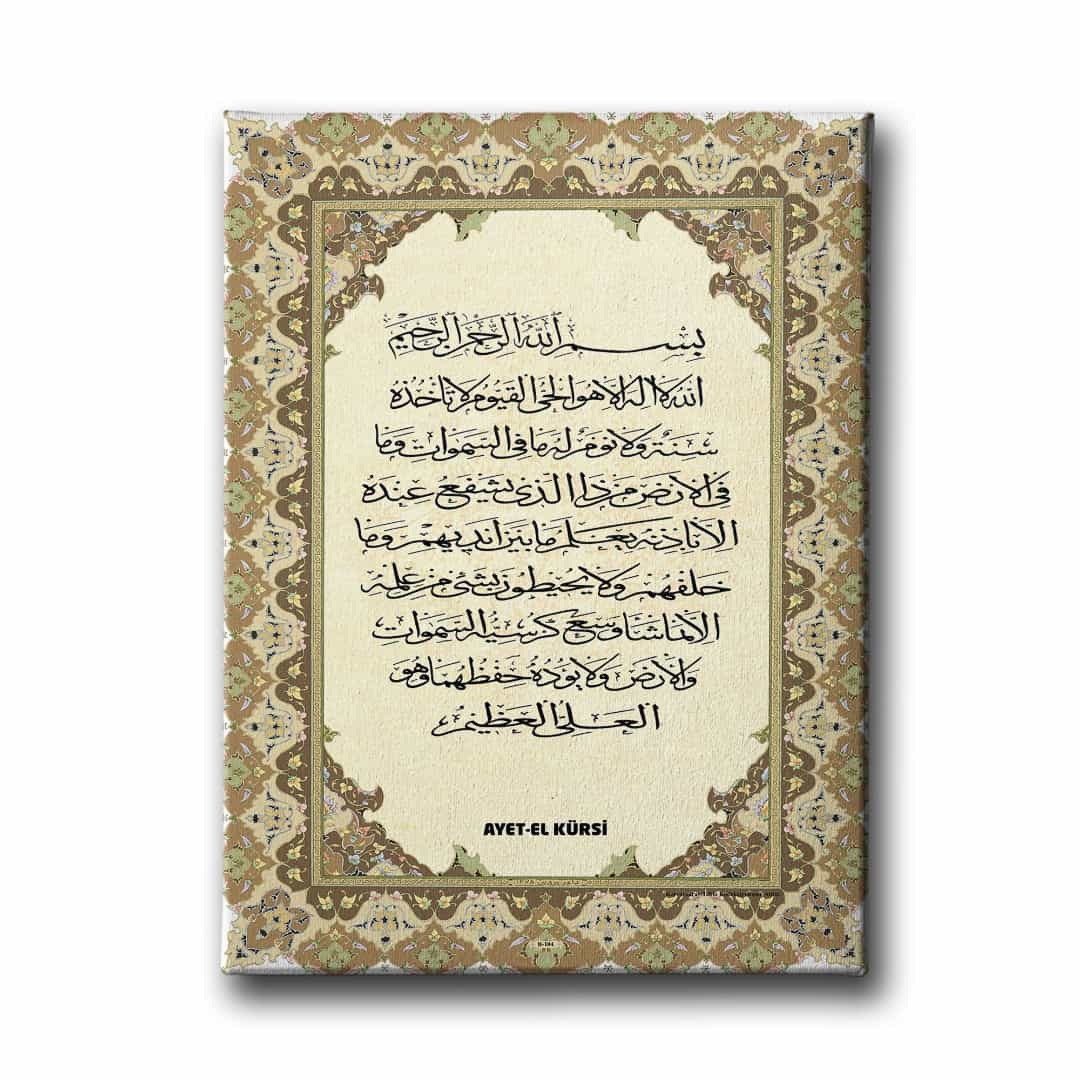 بسم الله الرحمن الرحيم
الله لا اله الا هو الحي القيوم لا تاخذه
سنة ولا نوم له ما في السموات وما
في الارض من ذا الذي يشفع عنده
الا باذنه يعلم ما بين ايديهم وما
خلفهم ولا يحيطون بشئ من علمه
الا بما شاء وسع كرسيه السموات
والارض ولا يؤده حفظهما وهو
العلي العظيم
AYET-EL KÜRSİ